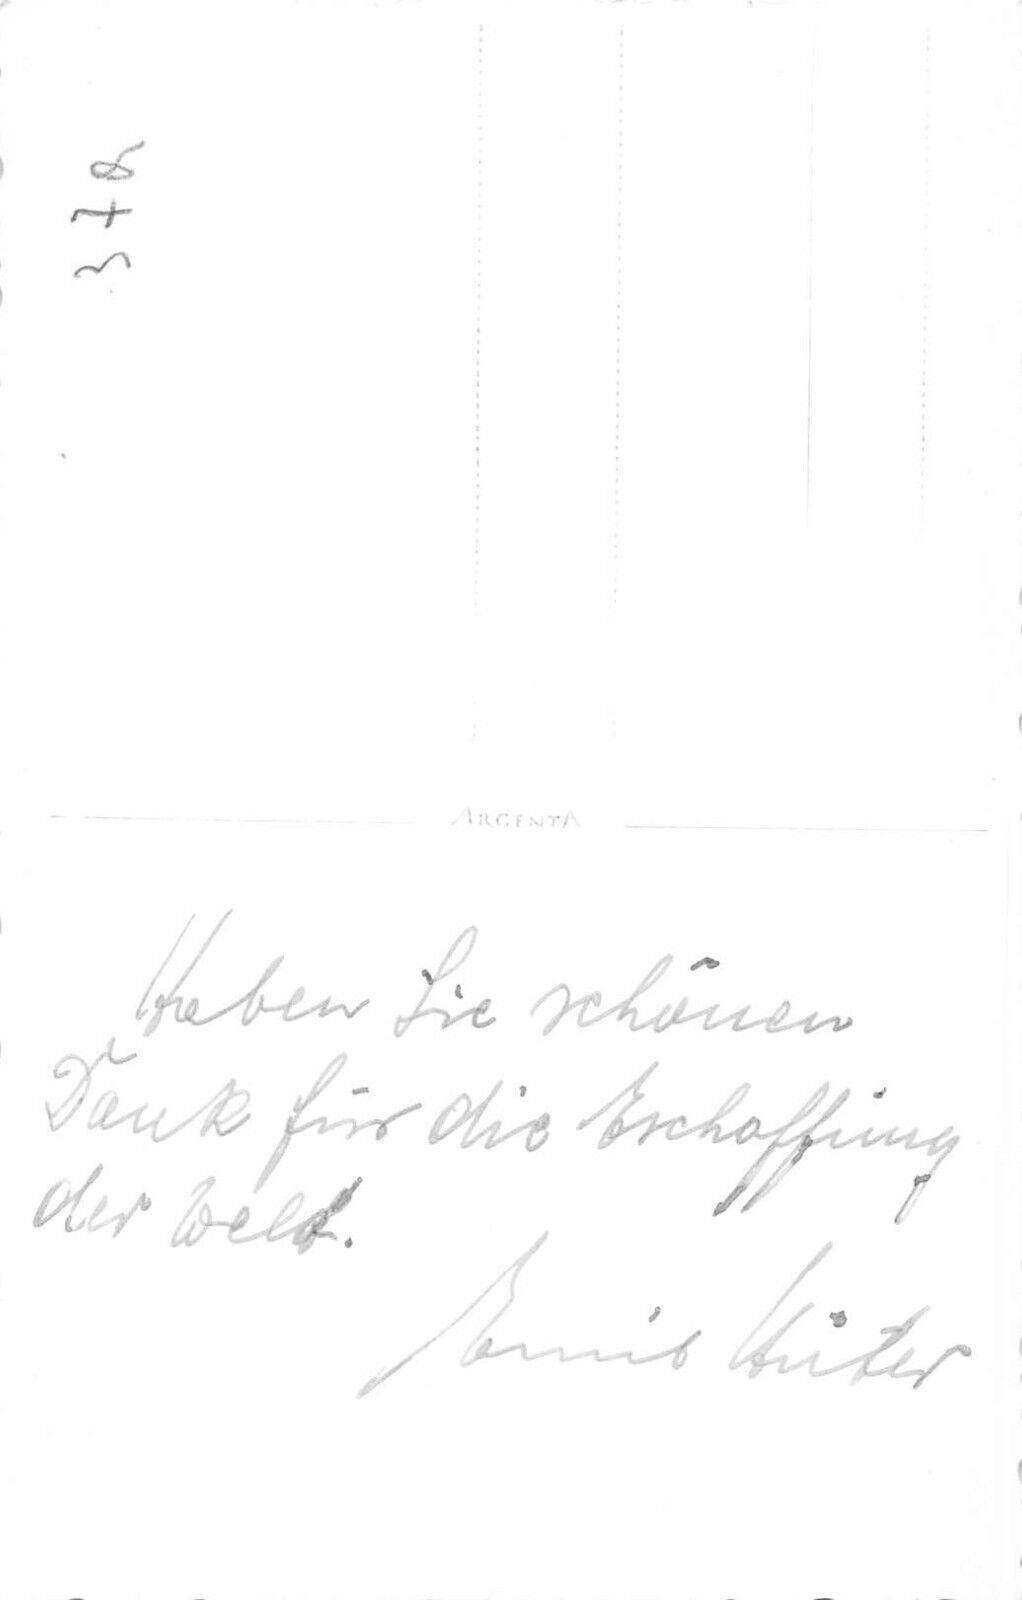 378
ARGENTA
Haben Sie schönen
Dank für die Erschaffung
der Welt.
Hüter